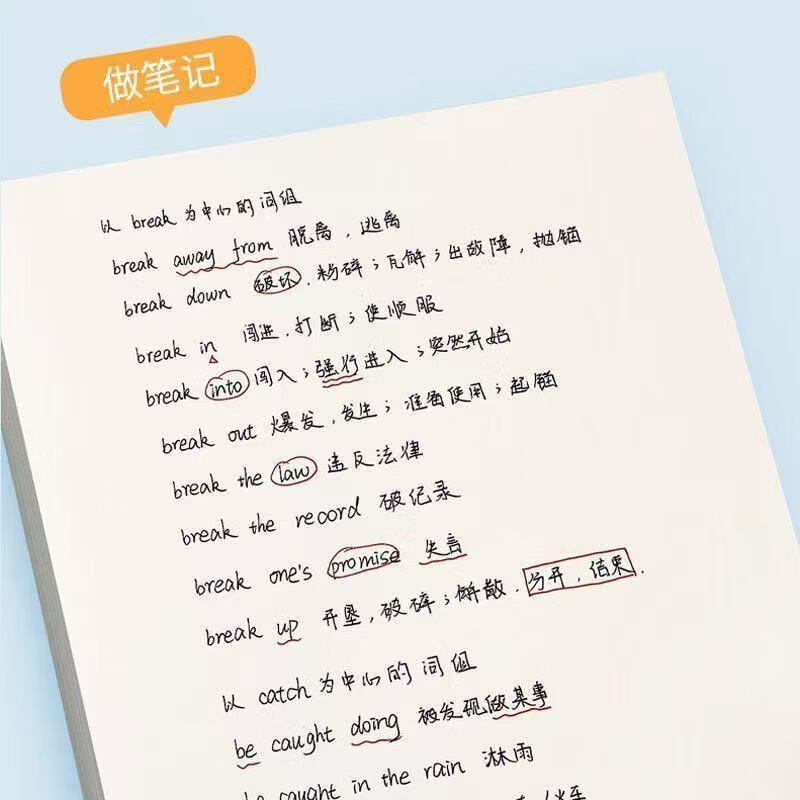 做笔记
以 break 为中心的词组
break away from 脱离，逃离
break down 破坏，粉碎；瓦解；出故障，抛锚
break in 闯进，打断；使顺服
break into 闯入；强行进入；突然开始
break out 爆发，发生；准备使用；起锚
break the law 违反法律
break the record 破纪录
break one's promise 失言
break up 开垦，破碎；解散，分开，结束．
以 catch 为中心的词组
be caught doing 被发现做某事
be caught in the rain 淋雨